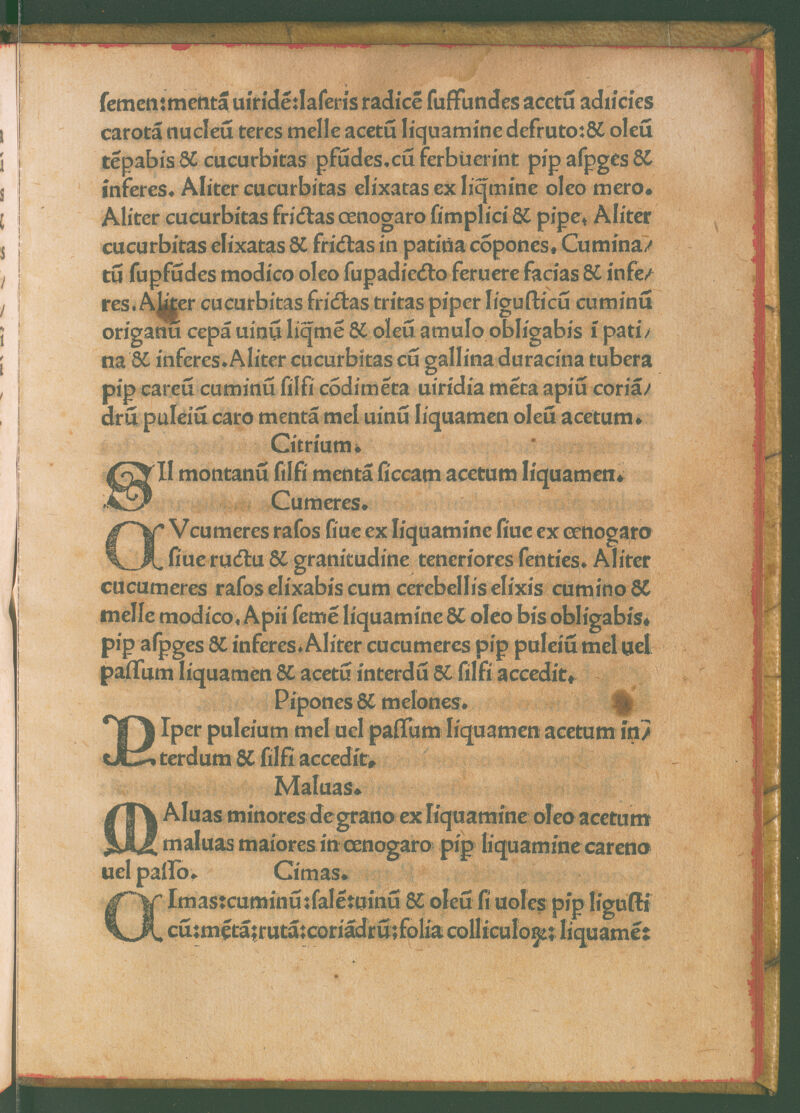 ſemen:mentā uiridē:laſeris radicē ſuffundes acetū adiicies
carotā nucleū teres melle acetū liquamine defruto:& oleū
tēpabis & cucurbitas pfūdes.cū ferbuerint pip aſpges &
inferes. Aliter cucurbitas elixatas ex liq̄mine oleo mero.
Aliter cucurbitas frictas œnogaro ſimplici & pipe. Aliter
cucurbitas elixatas & frictas in patina cōpones. Cumina/
tū ſupfūdes modico oleo ſupadiecto feruere facias & infe/
res. Aliter cucurbitas frictas tritas piper liguſticū cuminū
origanū cepā uinū liq̄mē & oleū amulo obligabis ī pati/
na & inferes. Aliter cucurbitas cū gallina duracina tubera
pip careū cuminū ſilfi cōdimēta uiridia mēta apiū coriā/
drū puleiū caro mentā mel uinū liquamen oleū acetum.
Citrium.
SIl montanū ſilfi mentā ſiccam acetum liquamen.
Cumeres.
CVcumeres raſos ſiue ex liquamine ſiue ex œnogaro
ſiue ructu & granitudine teneriores ſenties. Aliter
cucumeres raſos elixabis cum cerebellis elixis cumino &
melle modico. Apii ſemē liquamine & oleo bis obligabis.
pip aſpges & inferes. Aliter cucumeres pip puleiū mel uel
paſſum liquamen & acetū interdū & ſilfi accedit.
Pipones & melones.
PIper puleium mel uel paſſum liquamen acetum in/
terdum & ſilfi accedit.
Maluas.
MAluas minores de grano ex liquamine oleo acetum
maluas maiores in œnogaro pip liquamine careno
uel paſſo. Cimas.
CImas:cuminū:ſalē:uinū & oleū ſi uoles pip liguſti
cū:mētā:rutā:coriādrū:folia colliculoꝝ: liquamē: